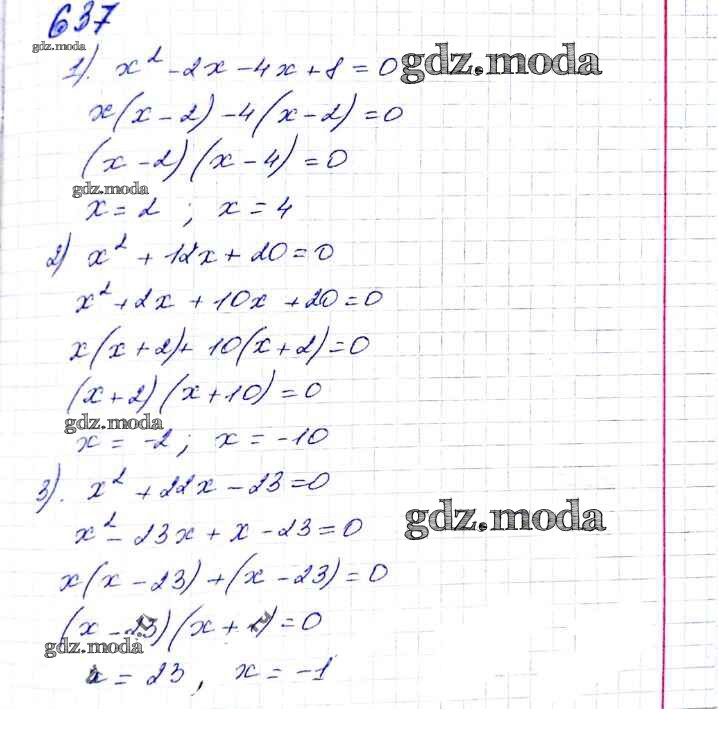 637
gdz.moda
1). x² - 2x - 4x + 8 = 0 gdz.moda
x(x - 2) - 4(x - 2) = 0
(x - 2)(x - 4) = 0
gdz.moda
x = 2 ; x = 4
2) x² + 12x + 20 = 0
x² + 2x + 10x + 20 = 0
x(x + 2) + 10(x + 2) = 0
(x + 2)(x + 10) = 0
gdz.moda
x = -2 ; x = -10
3). x² + 22x - 23 = 0
x² - 23x + x - 23 = 0 gdz.moda
x(x - 23) + (x - 23) = 0
(x - 23)(x + 1) = 0
gdz.moda
x = 23 , x = -1